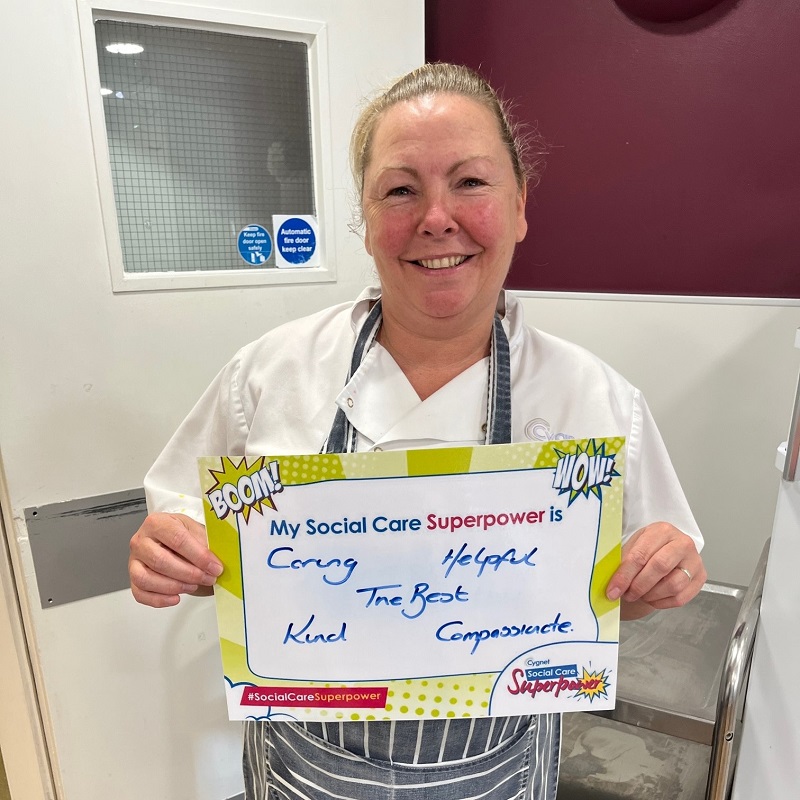 Keep fire
door open
safely
Automatic
fire door
keep clear
BOOM!
WOW!
My Social Care Superpower is
Caring Helpful
The Best
Kind Compassionate.
#SocialCareSuperpower
Cygnet
Social Care
Superpower